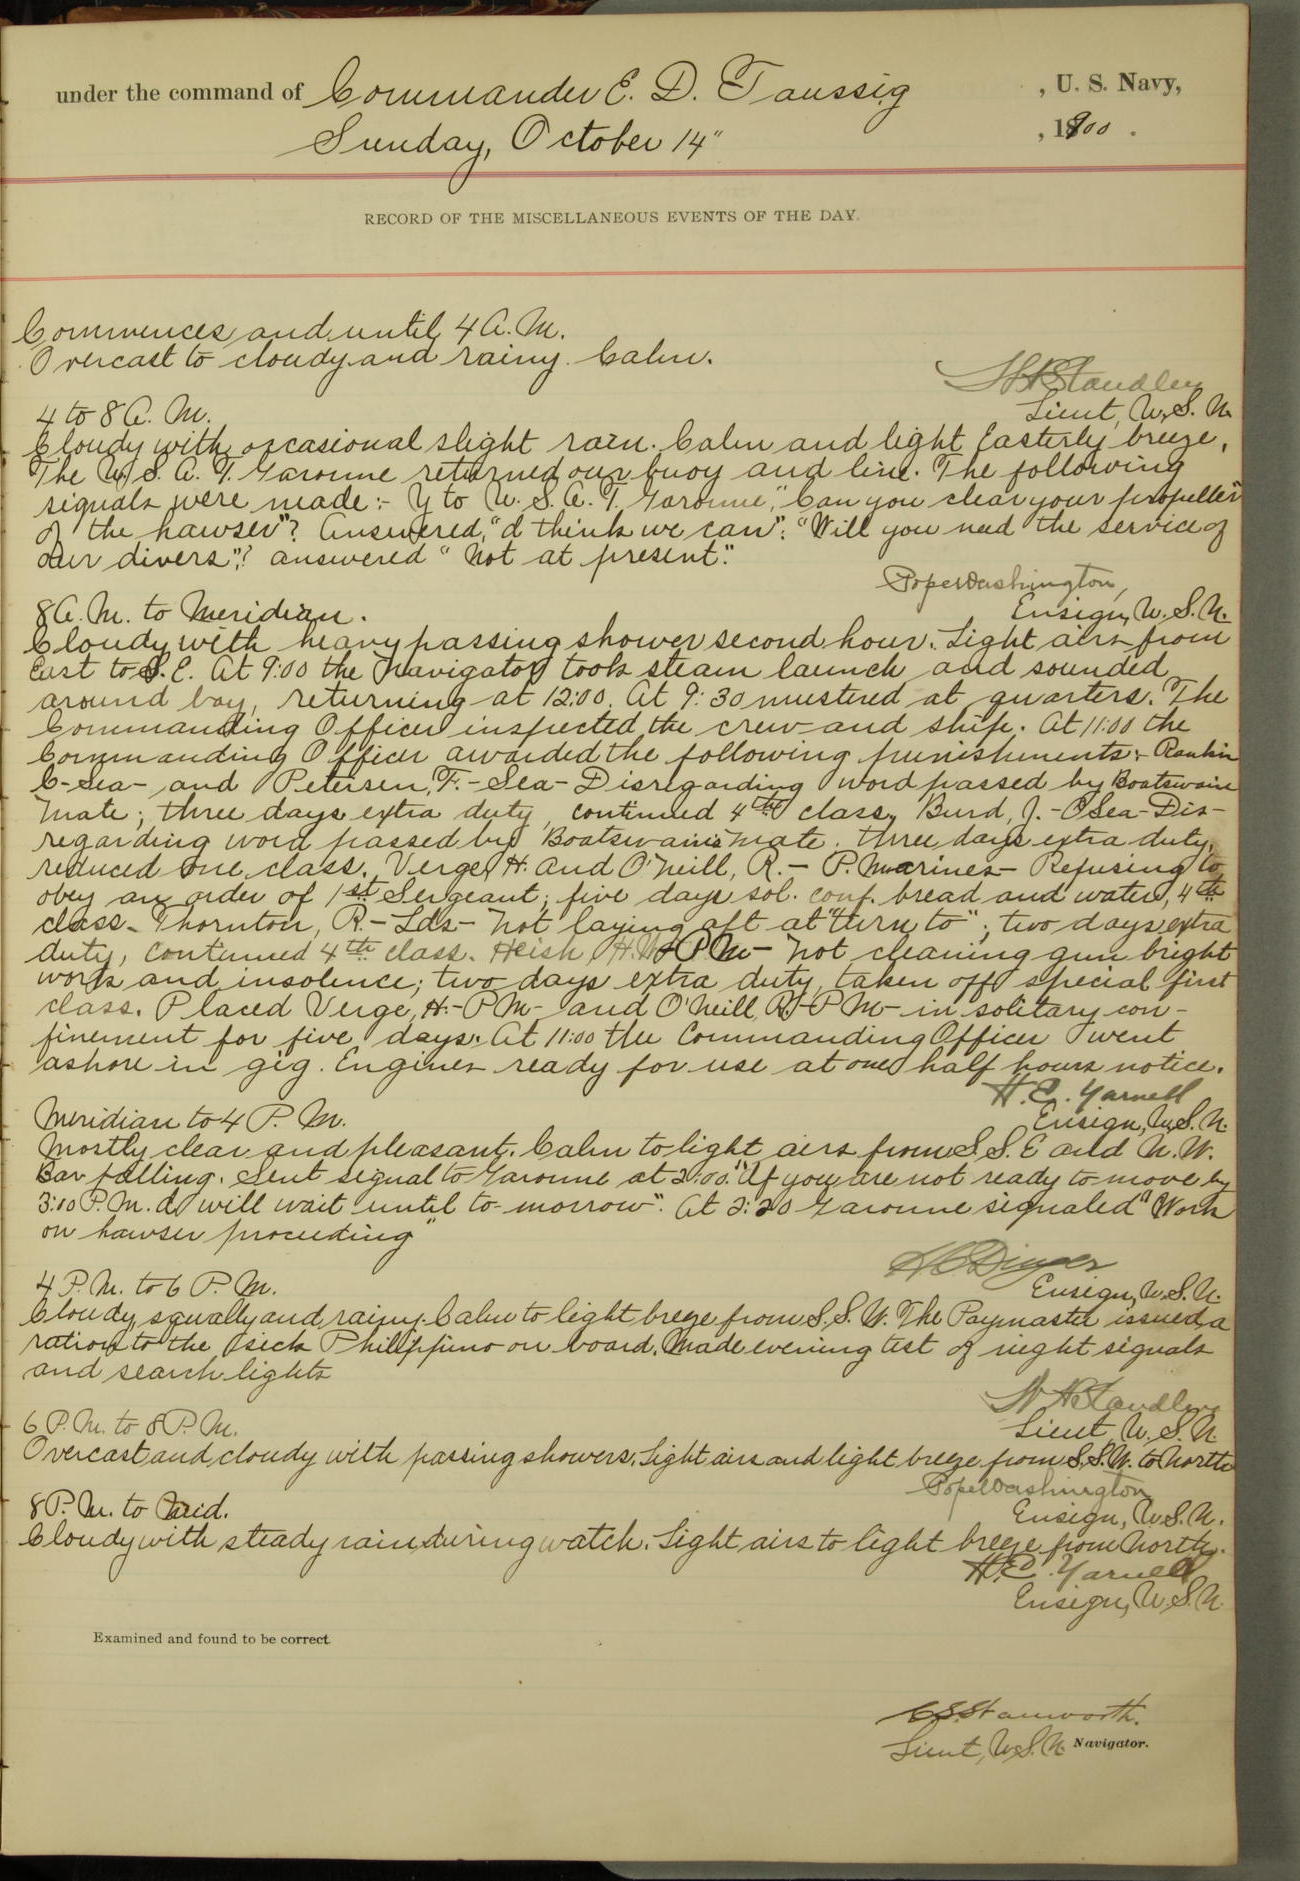 under the command of Commander E. D. Taussig , U. S. Navy,
Sunday, October 14" , 1900 .
RECORD OF THE MISCELLANEOUS EVENTS OF THE DAY.
Commences and until 4 A. M.
Overcast to cloudy and rainy. Calm.
W H Standley
Lieut, U. S. N.
4 to 8 A. M.
Cloudy with occasional slight rain. Calm and light Easterly breeze.
The U. S. A. T. Garonne returned our buoy and line. The following
signals were made:- Y to U. S. A. T. Garonne, "Can you clear your propeller
of the hawser"? Answered, "I think we can". "Will you need the service of
our divers"? answered "Not at present".
Pope Washington,
Ensign, U. S. N.
8 A. M. to Meridian.
Cloudy with heavy passing shower second hour. Light airs from
East to S. E. At 9:00 the Navigator took steam launch and sounded
around bay, returning at 12:00. At 9:30 mustered at quarters. The
Commanding Officer inspected the crew and ship. At 11:00 the
Commanding Officer awarded the following punishments:- Rankin
C-Sea- and Petersen, F.-Sea- Disregarding word passed by Boatswains
Mate; three days extra duty, continued 4th class. Burd, J.-OSea-Dis-
regarding word passed by Boatswains Mate. three days extra duty,
reduced one class. Verge, H. and O'Neill, R.- P. Marines- Refusing to
obey an order of 1st Sergeant; five days sol. conf. bread and water, 4th
class. Thornton, R.-Lds- Not laying aft at "turn to"; two days extra
duty, continued 4th class. Heish, H. W. P M- Not cleaning gun bright
work and insolence; two days extra duty, taken off special first
class. Placed Verge, H.-P M- and O'Neill, R.-P M- in solitary con-
finement for five days. At 11:00 the Commanding Officer went
ashore in gig. Engines ready for use at one half hours notice.
H. E. Yarnell
Ensign, U. S. N.
Meridian to 4 P. M.
Mostly clear and pleasant. Calm to light airs from S. S. E and N. W.
Bar falling. Sent signal to Garonne at 2:00. "If you are not ready to move by
3:00 P. M. I will wait until to-morrow". At 2:20 Garonne signaled "Work
on hawser proceeding"
H C Dinger
Ensign, U. S. N.
4 P. M. to 6 P. M.
Cloudy, squally and rainy. Calm to light breeze from S. S. W. The Paymaster issued a
ration to the sick Phillippino on board. Made evening test of night signals
and search lights
W H Standley
Lieut, U. S. N.
6 P. M. to 8 P. M.
Overcast and cloudy with passing showers. Light airs and light breeze from S. S. W. to North
Pope Washington
Ensign, U. S. N.
8 P. M. to Mid.
Cloudy with steady rain during watch. Light airs to light breeze from North.
H. E. Yarnell
Ensign, U. S. N.
Examined and found to be correct.
C S Stanworth.
Lieut, U. S. N. Navigator.